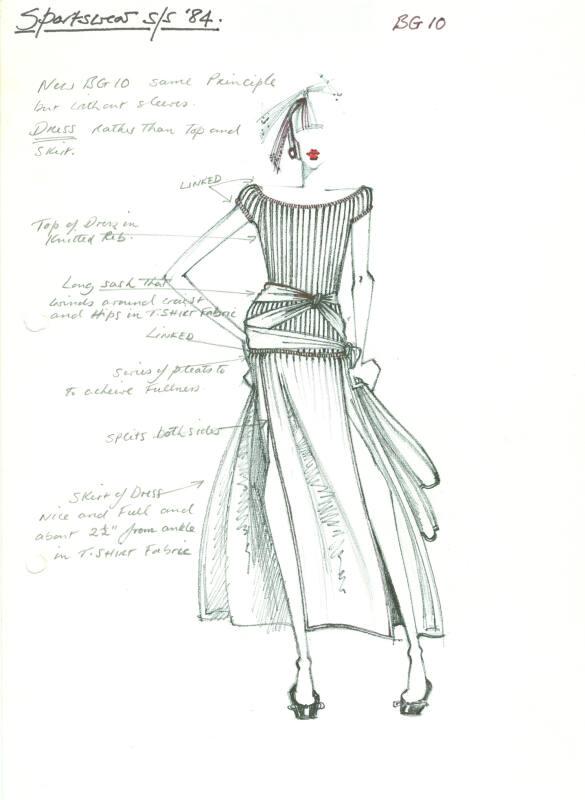 Sportswear S/S '84.
BG 10
New BG10 same Principle
but without sleeves.
Dress rather than Top and
Skirt.
LINKED
Top of Dress in
Knitted Rib.
Long sash that
winds around waist
and Hips in T.SHIRT Fabric
LINKED
Series of pleats to
to acheive Fullness.
splits both sides
Skirt of Dress
Nice and Full and
about 2½" from ankle
in T.SHIRT Fabric